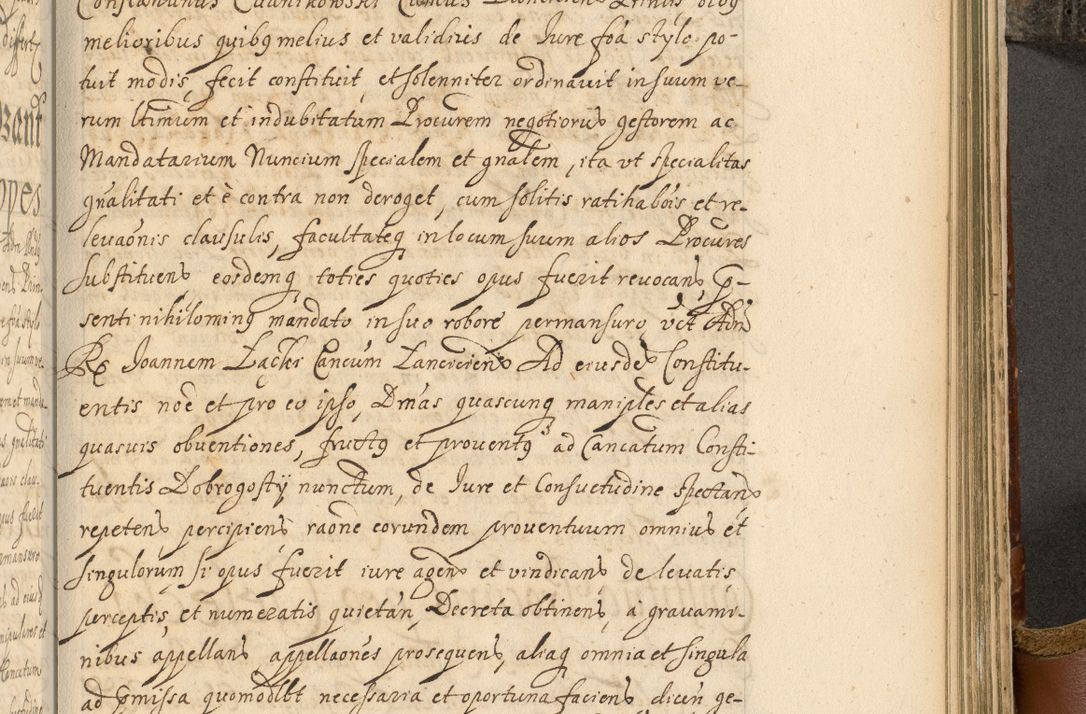 Constantinus Czarnkowski Canicus Lancicien Primis oibq
melioribus quibq melius et validius de Iure foã stylo po-
tuit modis, fecit constituit, et solenniter ordinavit in suum ve-
rum ltimum et indubitatum Procurem negotioru gestorem ac
Mandatarium Nuncium specialem et gnalem, ita ut specialitas
gnalitati et è contra non deroget, cum solitis ratihabois et re-
levaonis clausulis, facultateq in locum suum alios Procures
substituen eosdemq toties quoties opus fuerit revocan, p-
senti nihilominq mandato in suo robore permansuro, vet Adm
Rx Ioannem Łącki Cancum Lancicien Ad eiusde Constitu-
entis noe et pro eo ipso, Dmas quascunq maniples et alias
quasvis obventiones, fructq et proventq ad Cancatum Consti-
tuentis Dobrogosty nunctum, de Iure et Consuetudine spectan
repeten percipien raone eorundem proventuum omniu et
singulorum si opus fuerit iure agen et vindican de levatis
perceptis, et numeratis quietan, Decreta obtinen, a gravami-
nibus appellan, appellaones prosequen, aliaq omnia et singula
ad pmissa quomodlbt necessaria et oportuna facien dicen ge-